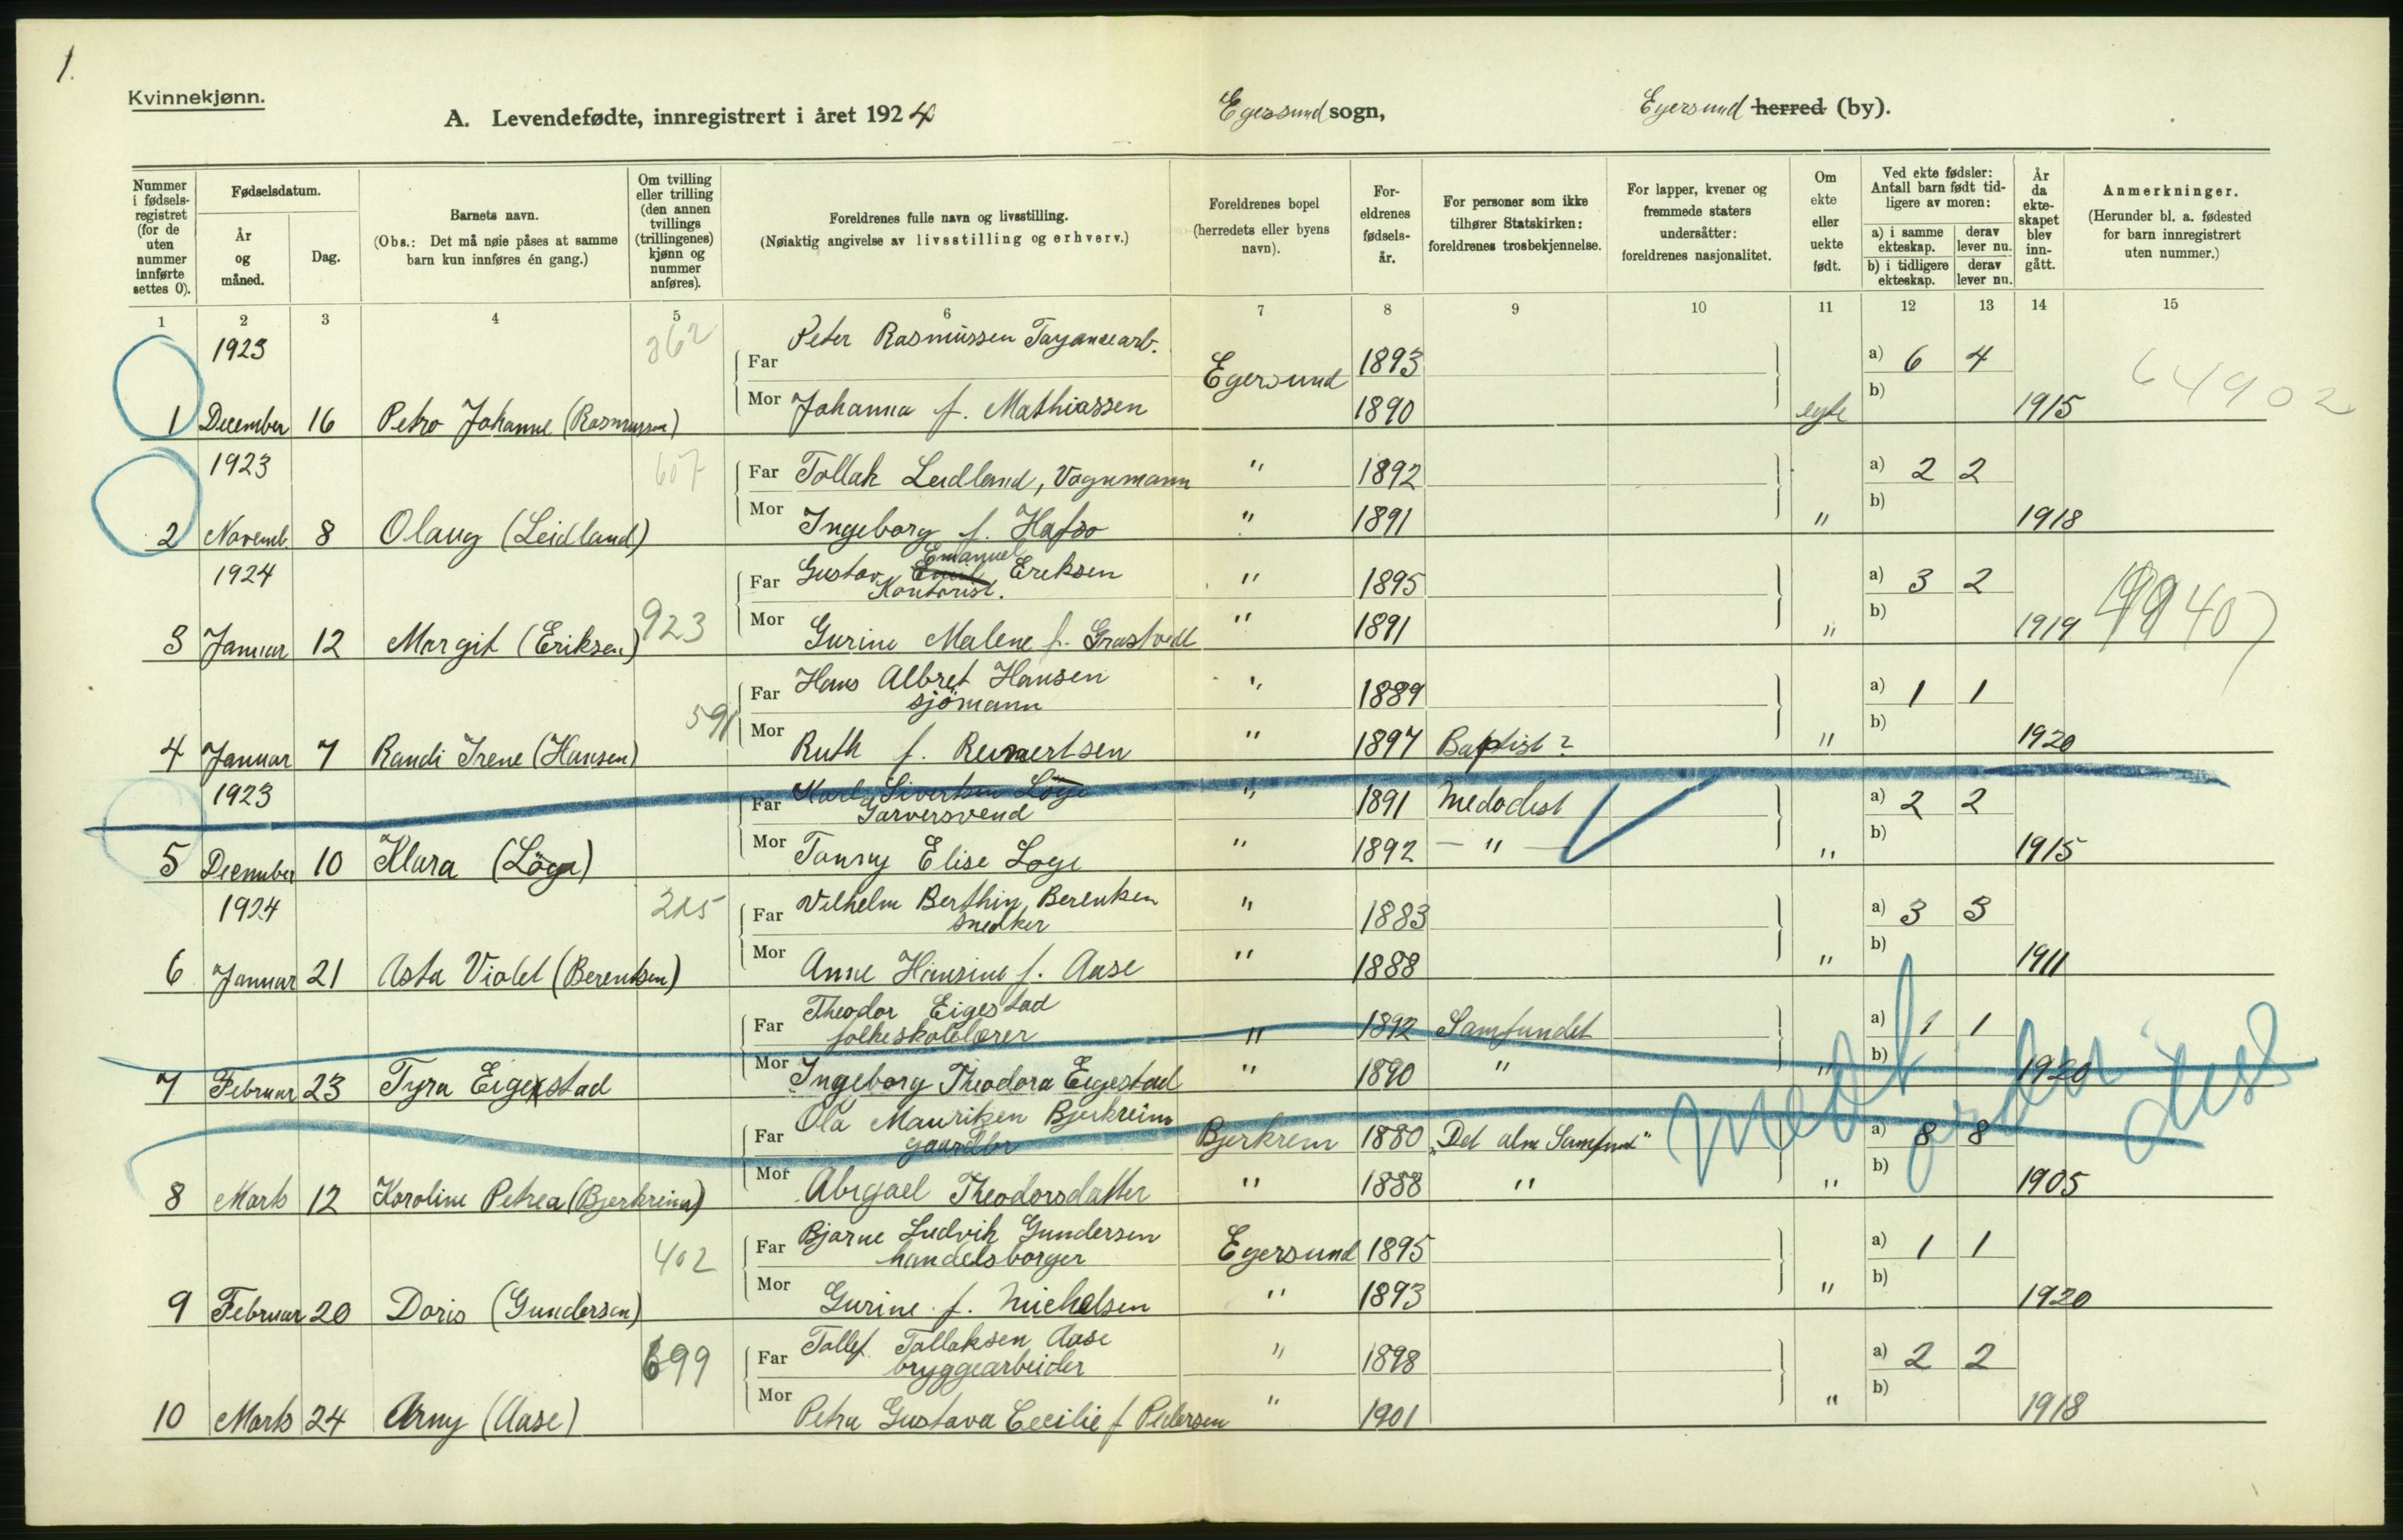 1.
Kvinnekjønn.
A. Levendefødte, innregistrert i året 1924
Egersund sogn,
Egersund herred (by).
Nummer i fødsels-registret (for de uten nummer innførte settes 0).
Fødselsdatum.
År og måned.
Dag.
Barnets navn.
(Obs.: Det må nøie påses at samme barn kun innføres én gang.)
Om tvilling eller trilling (den annen tvillings (trillingenes) kjønn og nummer anføres).
Foreldrenes fulle navn og livsstilling.
(Nøiaktig angivelse av livsstilling og erhverv.)
Foreldrenes bopel (herredets eller byens navn).
For-eldrenes fødsels-år.
For personer som ikke tilhører Statskirken: foreldrenes trosbekjennelse.
For lapper, kvener og fremmede staters undersåtter: foreldrenes nasjonalitet.
Om ekte eller uekte født.
Ved ekte fødsler: Antall barn født tid-ligere av moren:
a) i samme ekteskap.
derav lever nu.
b) i tidligere ekteskap.
derav lever nu.
År da ekte-skapet blev inn-gått.
Anmerkninger.
(Herunder bl. a. fødested for barn innregistrert uten nummer.)
1 2 3 4 5 6 7 8 9 10 11 12 13 14 15
1923 362 Far Peter Rasmussen Egersund 1893 a) 6 4 64902
1 December 16 Petro Johanne (Rasmussen) Mor Johanna f. Mathiassen 1890 egte b) 1915
1923 607 Far Tollak Leidland, Vognmann " 1892 a) 2 2
2 Novemb. 8 Olaug (Leidland) Mor Ingeborg f. Hafso " 1891 " b) 1918
1924 Far Gustav Emanuel Eriksen " 1895 a) 3 2
Kontorist.
3 Januar 12 Margit (Eriksen) 923 Mor Gurine Malene f. Grastvedt " 1891 " b) 1919
Far Hans Albret Hansen " 1889 a) 1 1
sjömann
4 Januar 7 Randi Irene (Hansen) 591 Mor Ruth f. Reinertsen " 1897 Baptist? " b) 1920
1923 Far Karl Sivertsen Löge " 1891 Medodist a) 2 2
Garversvend
5 December 10 Klara (Löge) Mor Tonny Elise Loge " 1892 — " — " b) 1915
1924 215 Far Vilhelm Berthin Berentsen " 1883 a) 3 3
snedker
6 Januar 21 Asta Violet (Berentsen) Mor Anne Hansine f. Aase " 1888 " b) 1911
Far Theodor Eigestad " 1892 Samfundet a) 1 1
folkeskolelærer
7 Februar 23 Tyra Eigestad Mor Ingeborg Theodora Eigestad " 1890 " " b) 1920
Far Ola Mauritzen Bjerkreim Bjerkrem 1880 „Det alm Samfund" a) 8 8
gaardbr
8 Marts 12 Karoline Petrea (Bjerkreim) Mor Abigael Theodorsdatter " 1888 " " b) 1905
402 Far Bjarne Ludvik Gundersen Egersund 1895 a) 1 1
handelsborger
9 Februar 20 Doris (Gundersen) Mor Gurine f. Michelsen " 1893 " b) 1920
699 Far Tollef Tollaksen Aase " 1898 a) 2 2
bryggearbeider
10 Marts 24 Arny (Aase) Mor Petra Gustava Cecilie f Pedersen " 1901 " b) 1918